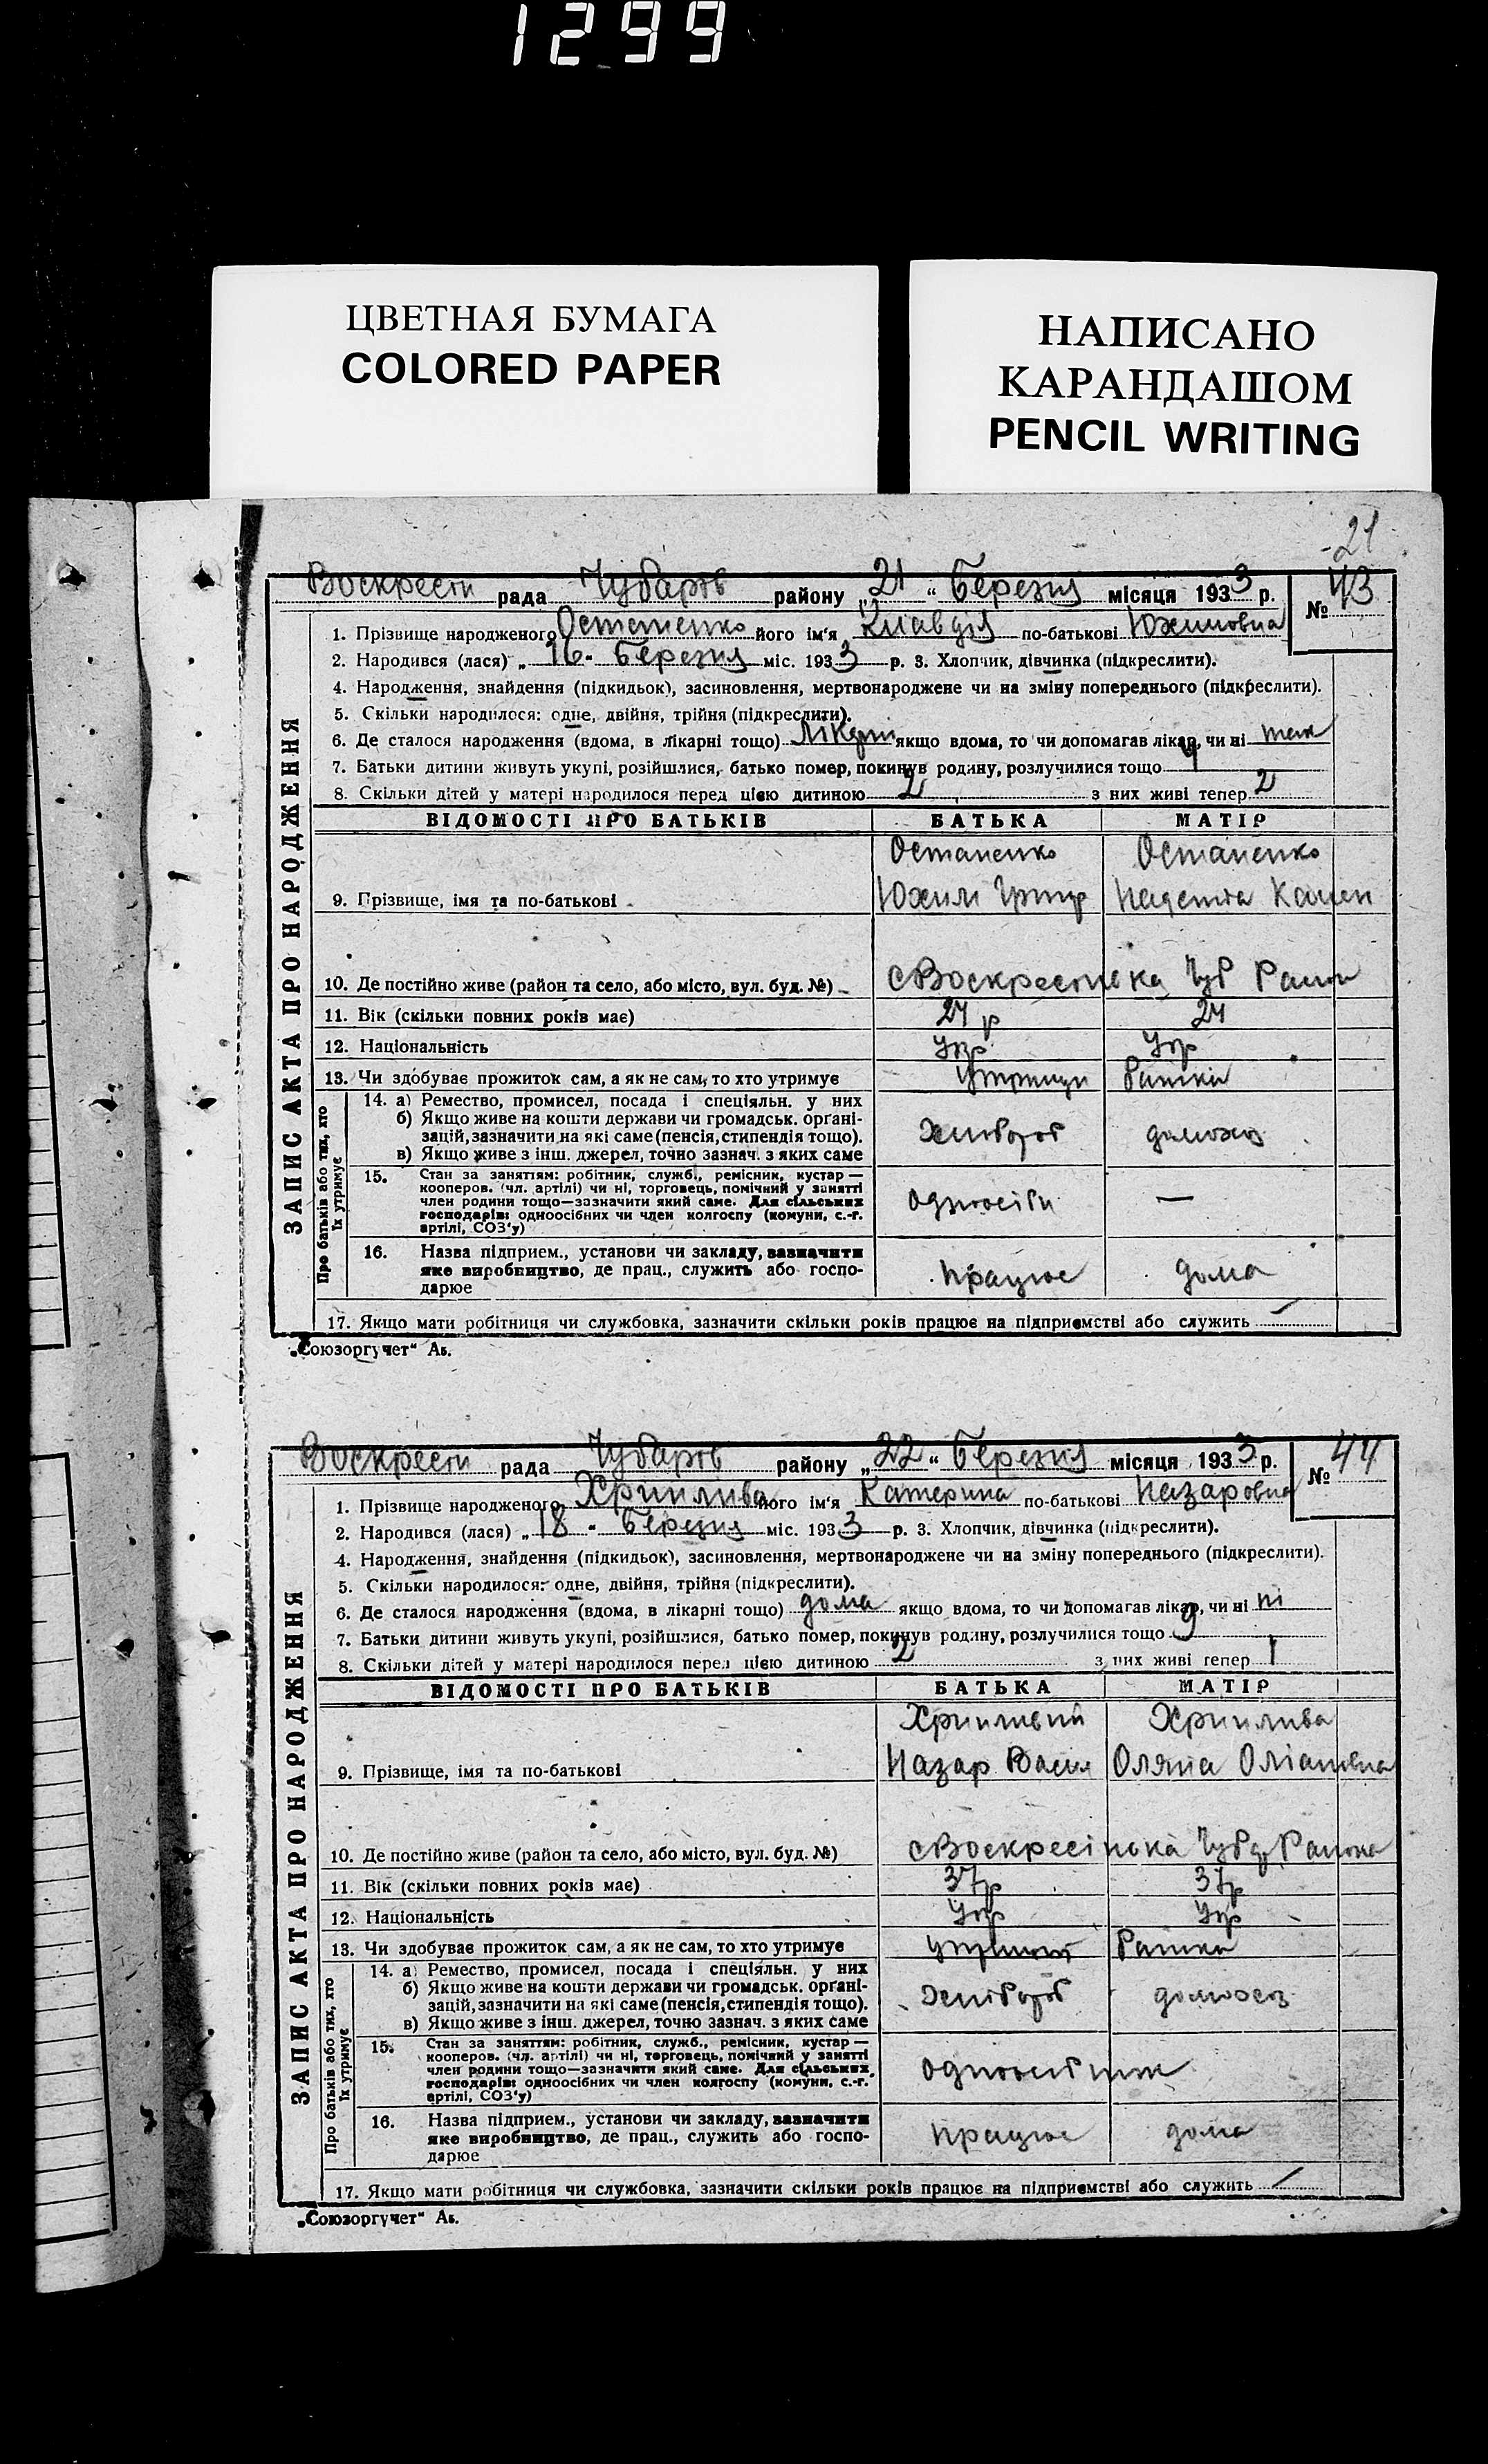 1299
ЦВЕТНАЯ БУМАГА
COLORED PAPER
НАПИСАНО
КАРАНДАШОМ
PENCIL WRITING
21
ЗАПИС АКТА ПРО НАРОДЖЕННЯ
Воскресен рада Чубарів району „21“ Березня місяця 1933 р. № 43
1. Прізвище народженого Остапенко його ім'я Клавдія по-батькові Юхимовна
2. Народився (лася) „16" Березня міс. 1933 р. 3. Хлопчик, дівчинка (підкреслити).
4. Народження, знайдення (підкидьок), засиновлення, мертвонароджене чи на зміну попереднього (підкреслити).
5. Скільки народилося: одне, двійня, трійня (підкреслити).
6. Де сталося народження (вдома, в лікарні тощо) якщо вдома, то чи допомагав лікар, чи ні так
7. Батьки дитини живуть укупі, розійшлися, батько помер, покинув родину, розлучилися тощо
8. Скільки дітей у матері народилося перед цією дитиною 2 з них живі тепер 2
ВІДОМОСТІ ПРО БАТЬКІВ БАТЬКА МАТІР
Остапенко Остапенко
9. Прізвище, імя та по-батькові Юхим
10. Де постійно живе (район та село, або місто, вул. буд. №) с Воскресенка Чуб Район
11. Вік (скільки повних років має) 24 р 24
12. Національність Укр Укр
13. Чи здобуває прожиток сам, а як не сам, то хто утримує
Про батьків або тих, хто їх утримує
14. а) Ремество, промисел, посада і спеціяльн. у них
б) Якщо живе на кошти держави чи громадськ. органі-
зацій, зазначити на які саме (пенсія, стипендія тощо).
в) Якщо живе з інш. джерел, точно зазнач. з яких саме
Хлібороб домохоз
15. Стан за заняттям: робітник, службі., ремісник, кустар —
кооперов. (чл. артілі) чи ні, торговець, помічний у занятті
член родини тощо—зазначити який саме. Для сільських
господарів: одноосібних чи член колгоспу (комуни, с.-г.
артілі, СОЗ'у)
—
16. Назва підприєм., установи чи закладу, зазначити
яке виробництво, де прац., служить або госпо-
дарює
працює дома
17. Якщо мати робітниця чи службовка, зазначити скільки років працює на підприємстві або служить —
„Союзоргучет“ Аб.
ЗАПИС АКТА ПРО НАРОДЖЕННЯ
Воскресен рада Чубарів району „22“ Березня місяця 1933 р. № 44
1. Прізвище народженого Хриплива його ім'я Катерина по-батькові Назаровна
2. Народився (лася) „18" Березня міс. 1933 р. 3. Хлопчик, дівчинка (підкреслити).
4. Народження, знайдення (підкидьок), засиновлення, мертвонароджене чи на зміну попереднього (підкреслити).
5. Скільки народилося: одне, двійня, трійня (підкреслити).
6. Де сталося народження (вдома, в лікарні тощо) дома якщо вдома, то чи допомагав лікар, чи ні ні
7. Батьки дитини живуть укупі, розійшлися, батько помер, покинув родину, розлучилися тощо
8. Скільки дітей у матері народилося перед цією дитиною 2 з них живі тепер 1
ВІДОМОСТІ ПРО БАТЬКІВ БАТЬКА МАТІР
Хрипливий Хриплива
9. Прізвище, імя та по-батькові Назар Васил Оляна
10. Де постійно живе (район та село, або місто, вул. буд. №) с Воскресінка Района
11. Вік (скільки повних років має) 37р 37р
12. Національність Укр Укр
13. Чи здобуває прожиток сам, а як не сам, то хто утримує
Про батьків або тих, хто їх утримує
14. а) Ремество, промисел, посада і спеціяльн. у них
б) Якщо живе на кошти держави чи громадськ. органі-
зацій, зазначити на які саме (пенсія, стипендія тощо).
в) Якщо живе з інш. джерел, точно зазнач. з яких саме
Хлібороб домохоз
15. Стан за заняттям: робітник, служб., ремісник, кустар —
кооперов. (чл. артілі) чи ні, торговець, помічний у занятті
член родини тощо—зазначити який саме. Для сільських
господарів: одноосібних чи член колгоспу (комуни, с.-г.
артілі, СОЗ'у)
одноосібник
16. Назва підприєм., установи чи закладу, зазначити
яке виробництво, де прац., служить або госпо-
дарює
працює дома
17. Якщо мати робітниця чи службовка, зазначити скільки років працює на підприємстві або служить —
„Союзоргучет“ Аб.